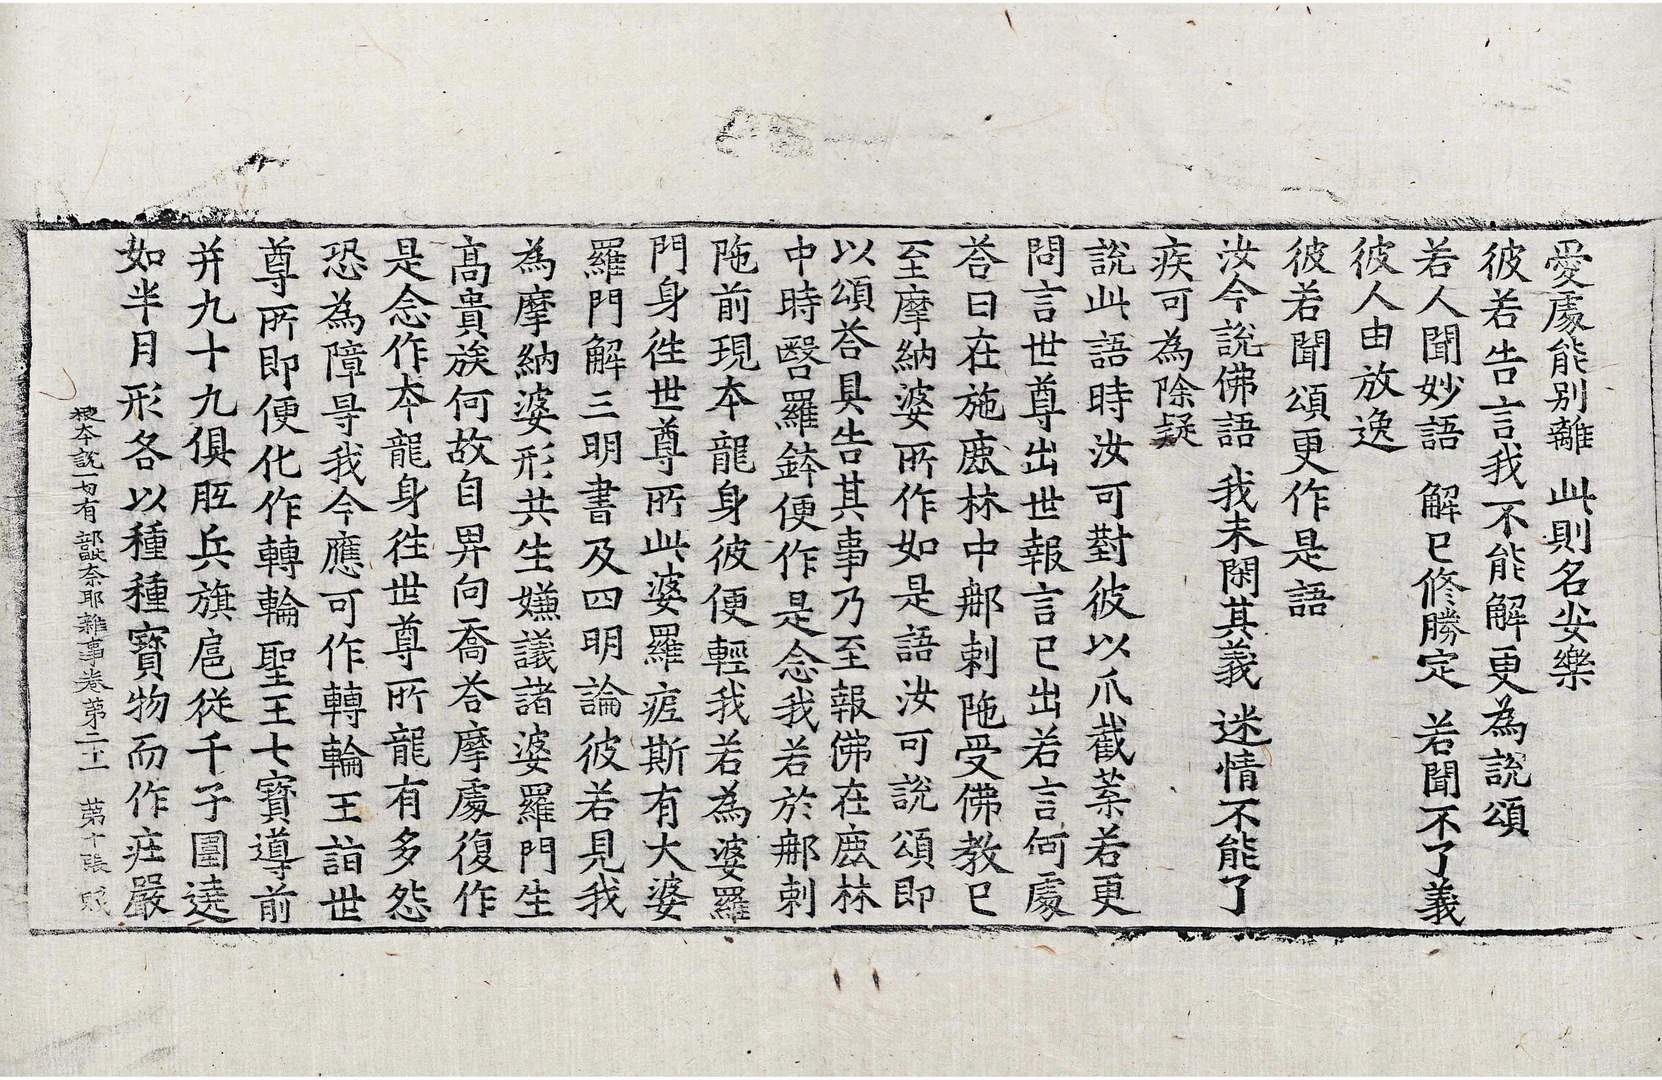 愛處能別離　此則名安樂
彼若告言我不能解更為說頌
若人聞妙語　解已修勝定　若聞不了義
彼人由放逸
彼若聞頌更作是語
汝今說佛語　我未閑其義　迷情不能了
疾可為除疑
說此語時汝可對彼以爪截葉若更
問言世尊出世報言已出若言何處
荅曰在施鹿林中郍剌陁受佛教已
至摩納婆所作如是語汝可說頌即
以頌荅具告其事乃至報佛在鹿林
中時瑿羅鉢便作是念我若於郍剌
陁前現本龍身彼便輕我若為婆羅
門身往世尊所此婆羅痆斯有大婆
羅門解三明書及四明論彼若見我
為摩納婆形共生嫌議諸婆羅門生
高貴族何故自畀向喬荅摩處復作
是念作本龍身往世尊所龍有多怨
恐為障㝵我今應可作轉輪王詣世
尊所即便化作轉輪聖王七寶導前
并九十九俱胝兵旗扈従千子圍遶
如半月形各以種種寶物而作莊嚴
根本說一切有部毗奈耶雜事卷第二十一　第十張